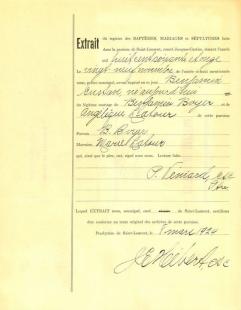 Extrait du registre des BAPTÊMES, MARIAGES et SÉPULTURES faits
dans la paroisse de Saint-Laurent, comté Jacques-Cartier, durant l'année
mil huit cent soixante et onze
Le vingt-neuf novembre de l'année ci-haut mentionnée
nous, prêtre soussigné, avons baptisé en ce jour Benjamin
Gustave, né aujourd'hui
du légitime mariage de Benjamin Boyer et
Angélique Latour de cette paroisse
Parrain B. Boyer
Marraine Marie Latour
qui, ainsi que le père, ont signé avec nous. Lecture faite.
Ptre
Lequel EXTRAIT nous, soussigné, curé de Saint-Laurent, certifions
être conforme au texte original des archives de cette paroisse.
Presbytère de Saint-Laurent, le 8 mars 1924